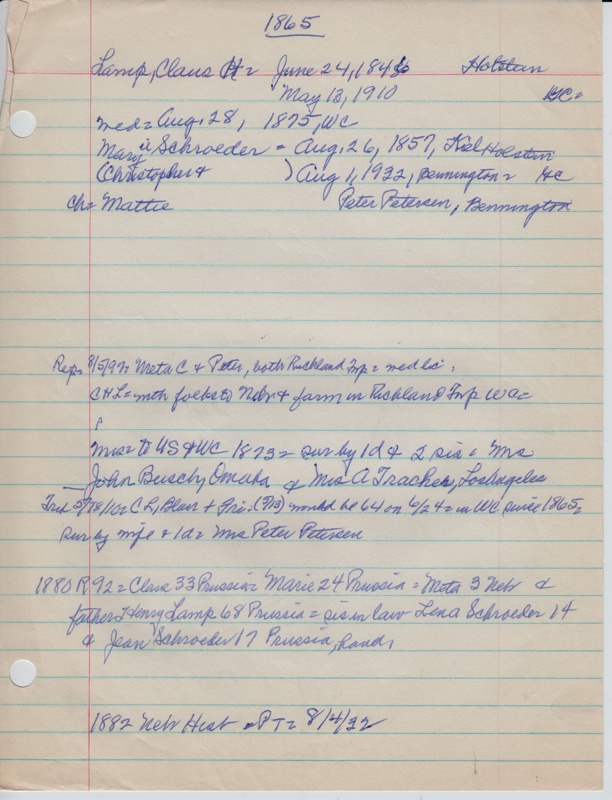 1865
Lamp, Claus H = June 24, 1846 Holstein
May 13, 1910 HC =
wed = Aug. 28, 1875, WC
Mary Schroeder = Aug. 26, 1857, Kiel Holstein
Christopher & ) Aug 1, 1932, Bennington = HC
ch = Mattie Peter Petersen, Bennington
Rep = 8/5/97 = Meta C & Peter, both Richland Twp = wed lic =
CHL = with folks to Nebr & farm in Richland Twp WC =
Mrs = to US & WC 1873 = sur by 1d & 2 sis = Mrs
John Busch, Omaha & Mrs A Tracher, Los Angeles
Trib 5/18/10 = CL, Blair + Fri. (5/13) would be 64 on 6/24 = in WC since 1865 =
sur by wife & 1d = Mrs Peter Petersen
1880 R 92 = Claus 33 Prussia = Marie 24 Prussia = Meta 3 Nebr &
father Henry Lamp 68 Prussia = sis in law Lena Schroeder 14
& Jean Schroeder 17 Prussia, hand,
1882 Nebr Hist = PT = 8/4/32